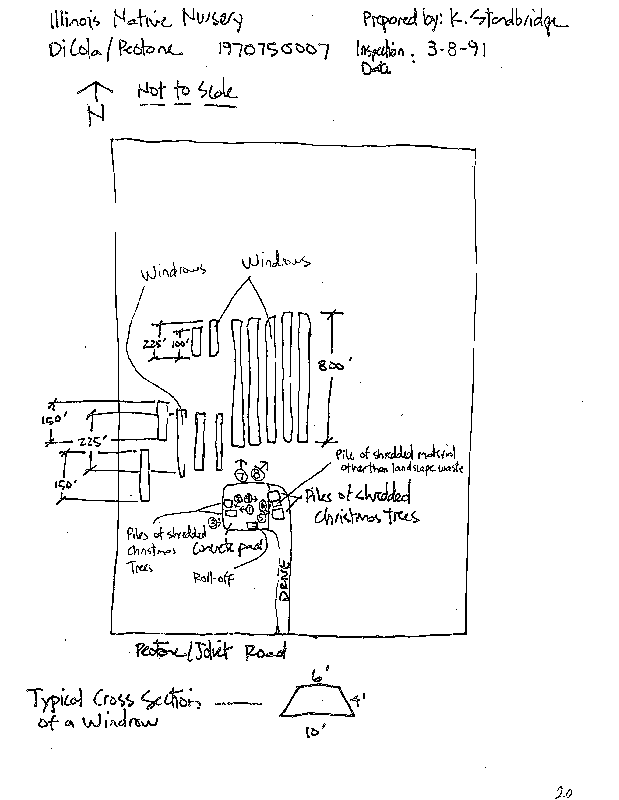 Illinois Native Nursery
Prepared by: K. Standbridge
DiCola/Peotone 1970750007
Inspection Date: 3-8-91
N
Not to Scale
Windrows
Windrows
225'
100'
800'
150'
225'
150'
Pile of shredded material
other than landscape waste
Piles of shredded
Christmas trees
Piles of shredded
Christmas
Trees
Concrete pad
Roll-off
DRIVE
Peotone/Joliet Road
6'
Typical Cross Section
of a Windrow
4'
10'
20